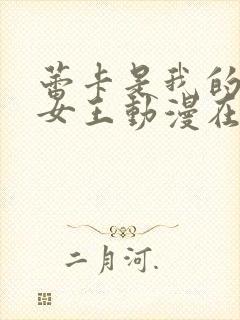 蕾卡是我的
女王動漫在
二月河.